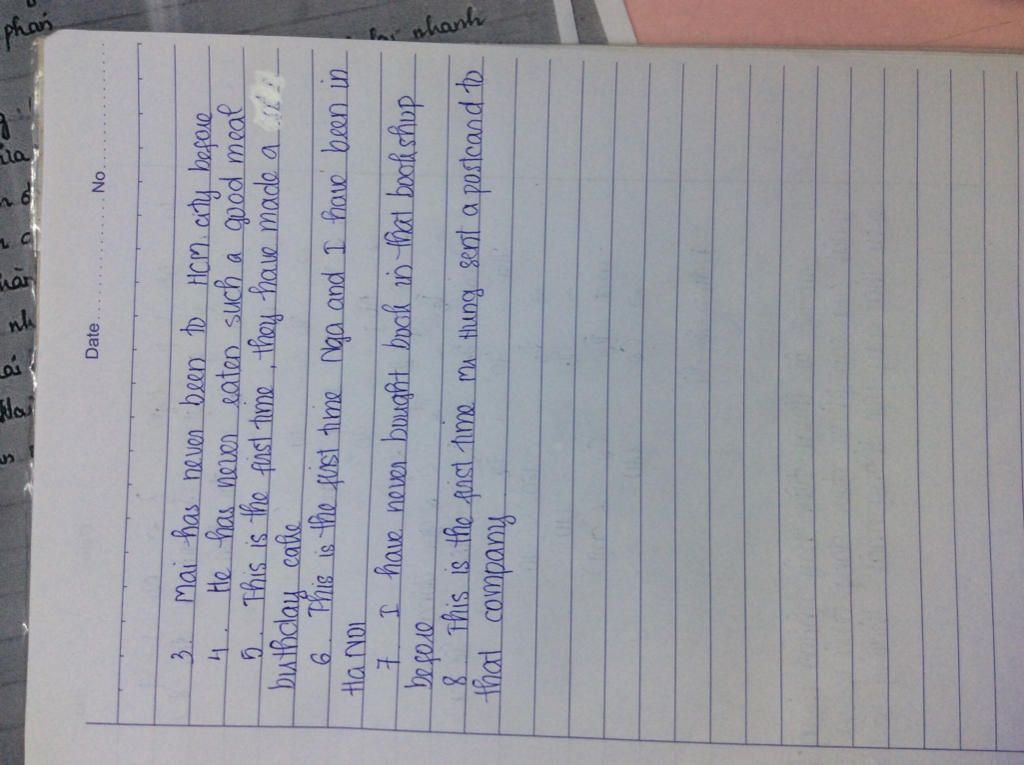 Date.....................No.....................
3. Mai has never been to HCM. city before
4. He has never eaten such a good meal
5. This is the first time, they have made a
birthday cake
6. This is the first time Nga and I have been in
Ha Noi
7. I have never bought book in that bookship
before
8. This is the first time Mr Hung sent a postcand to
that company
phản
nhanh